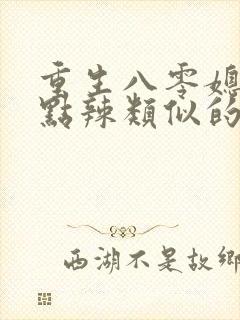 重生八零媳
點辣類似的
西湖不是故鄉